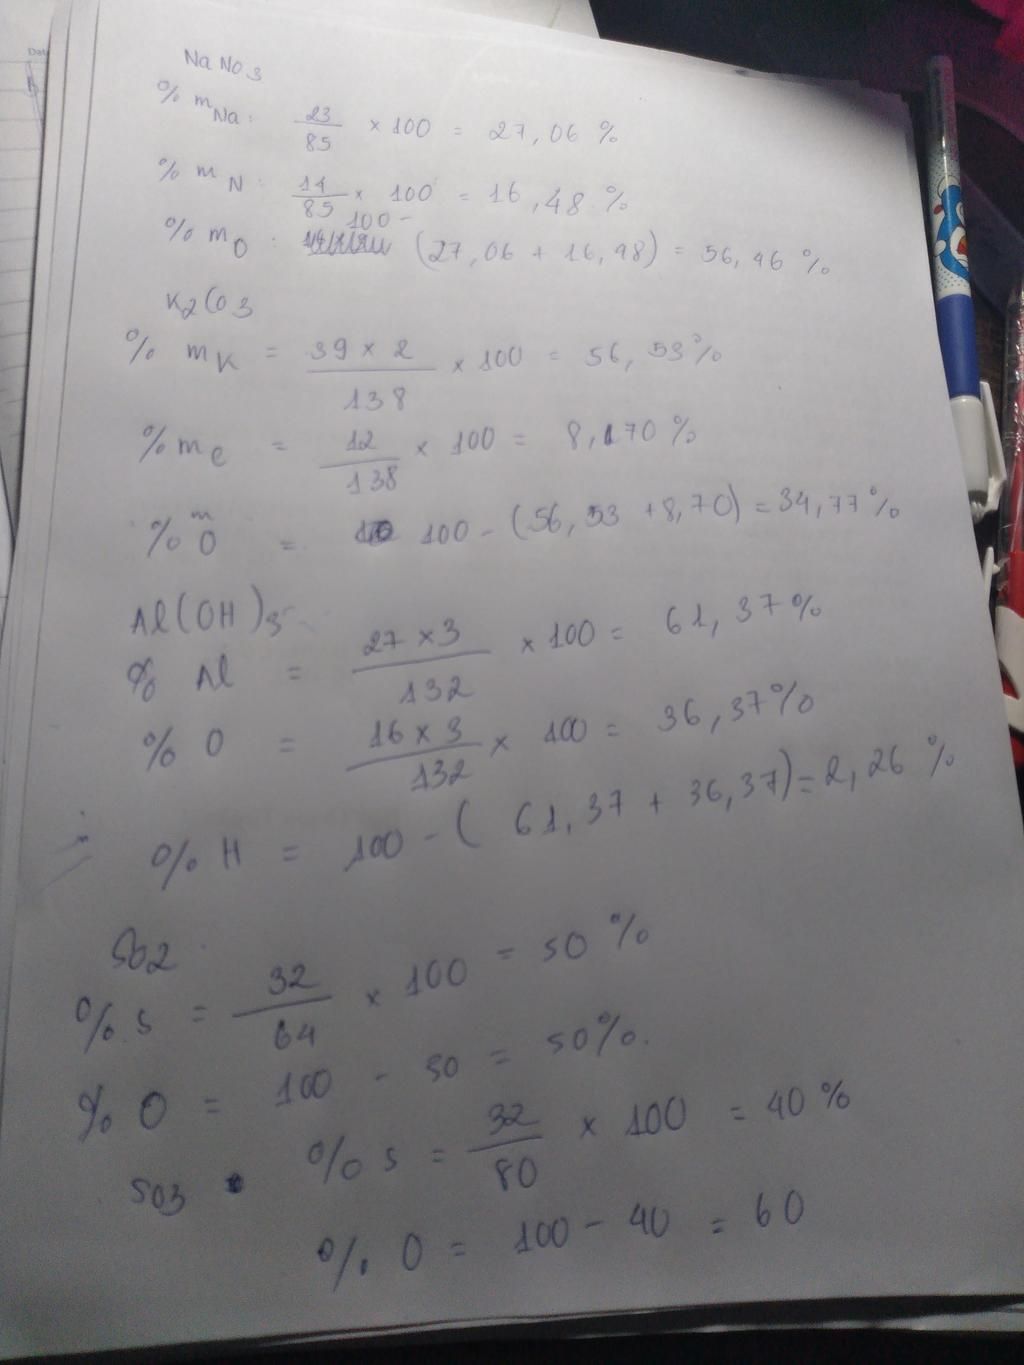 NaNO3
% mNa: 23/85 × 100 = 27,06 %
% mN: 14/85 × 100 = 16,48 %
% mO: 100 - (27,06 + 16,48) = 56,46 %
K2CO3
% mK = 39 × 2/138 × 100 = 56,53 %
% mC = 12/138 × 100 = 8,70 %
% mO = 100 - (56,53 + 8,70) = 34,77 %
Al(OH)3
% Al = 27 × 3/132 × 100 = 61,37 %
% O = 16 × 3/132 × 100 = 36,37 %
% H = 100 - (61,37 + 36,37) = 2,26 %
SO2
% S = 32/64 × 100 = 50 %
% O = 100 - 50 = 50 %.
SO3 % S = 32/80 × 100 = 40 %
% O = 100 - 40 = 60